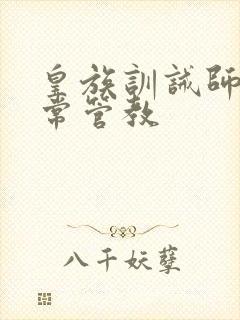 皇族訓誡師
常管教
八千妖孽